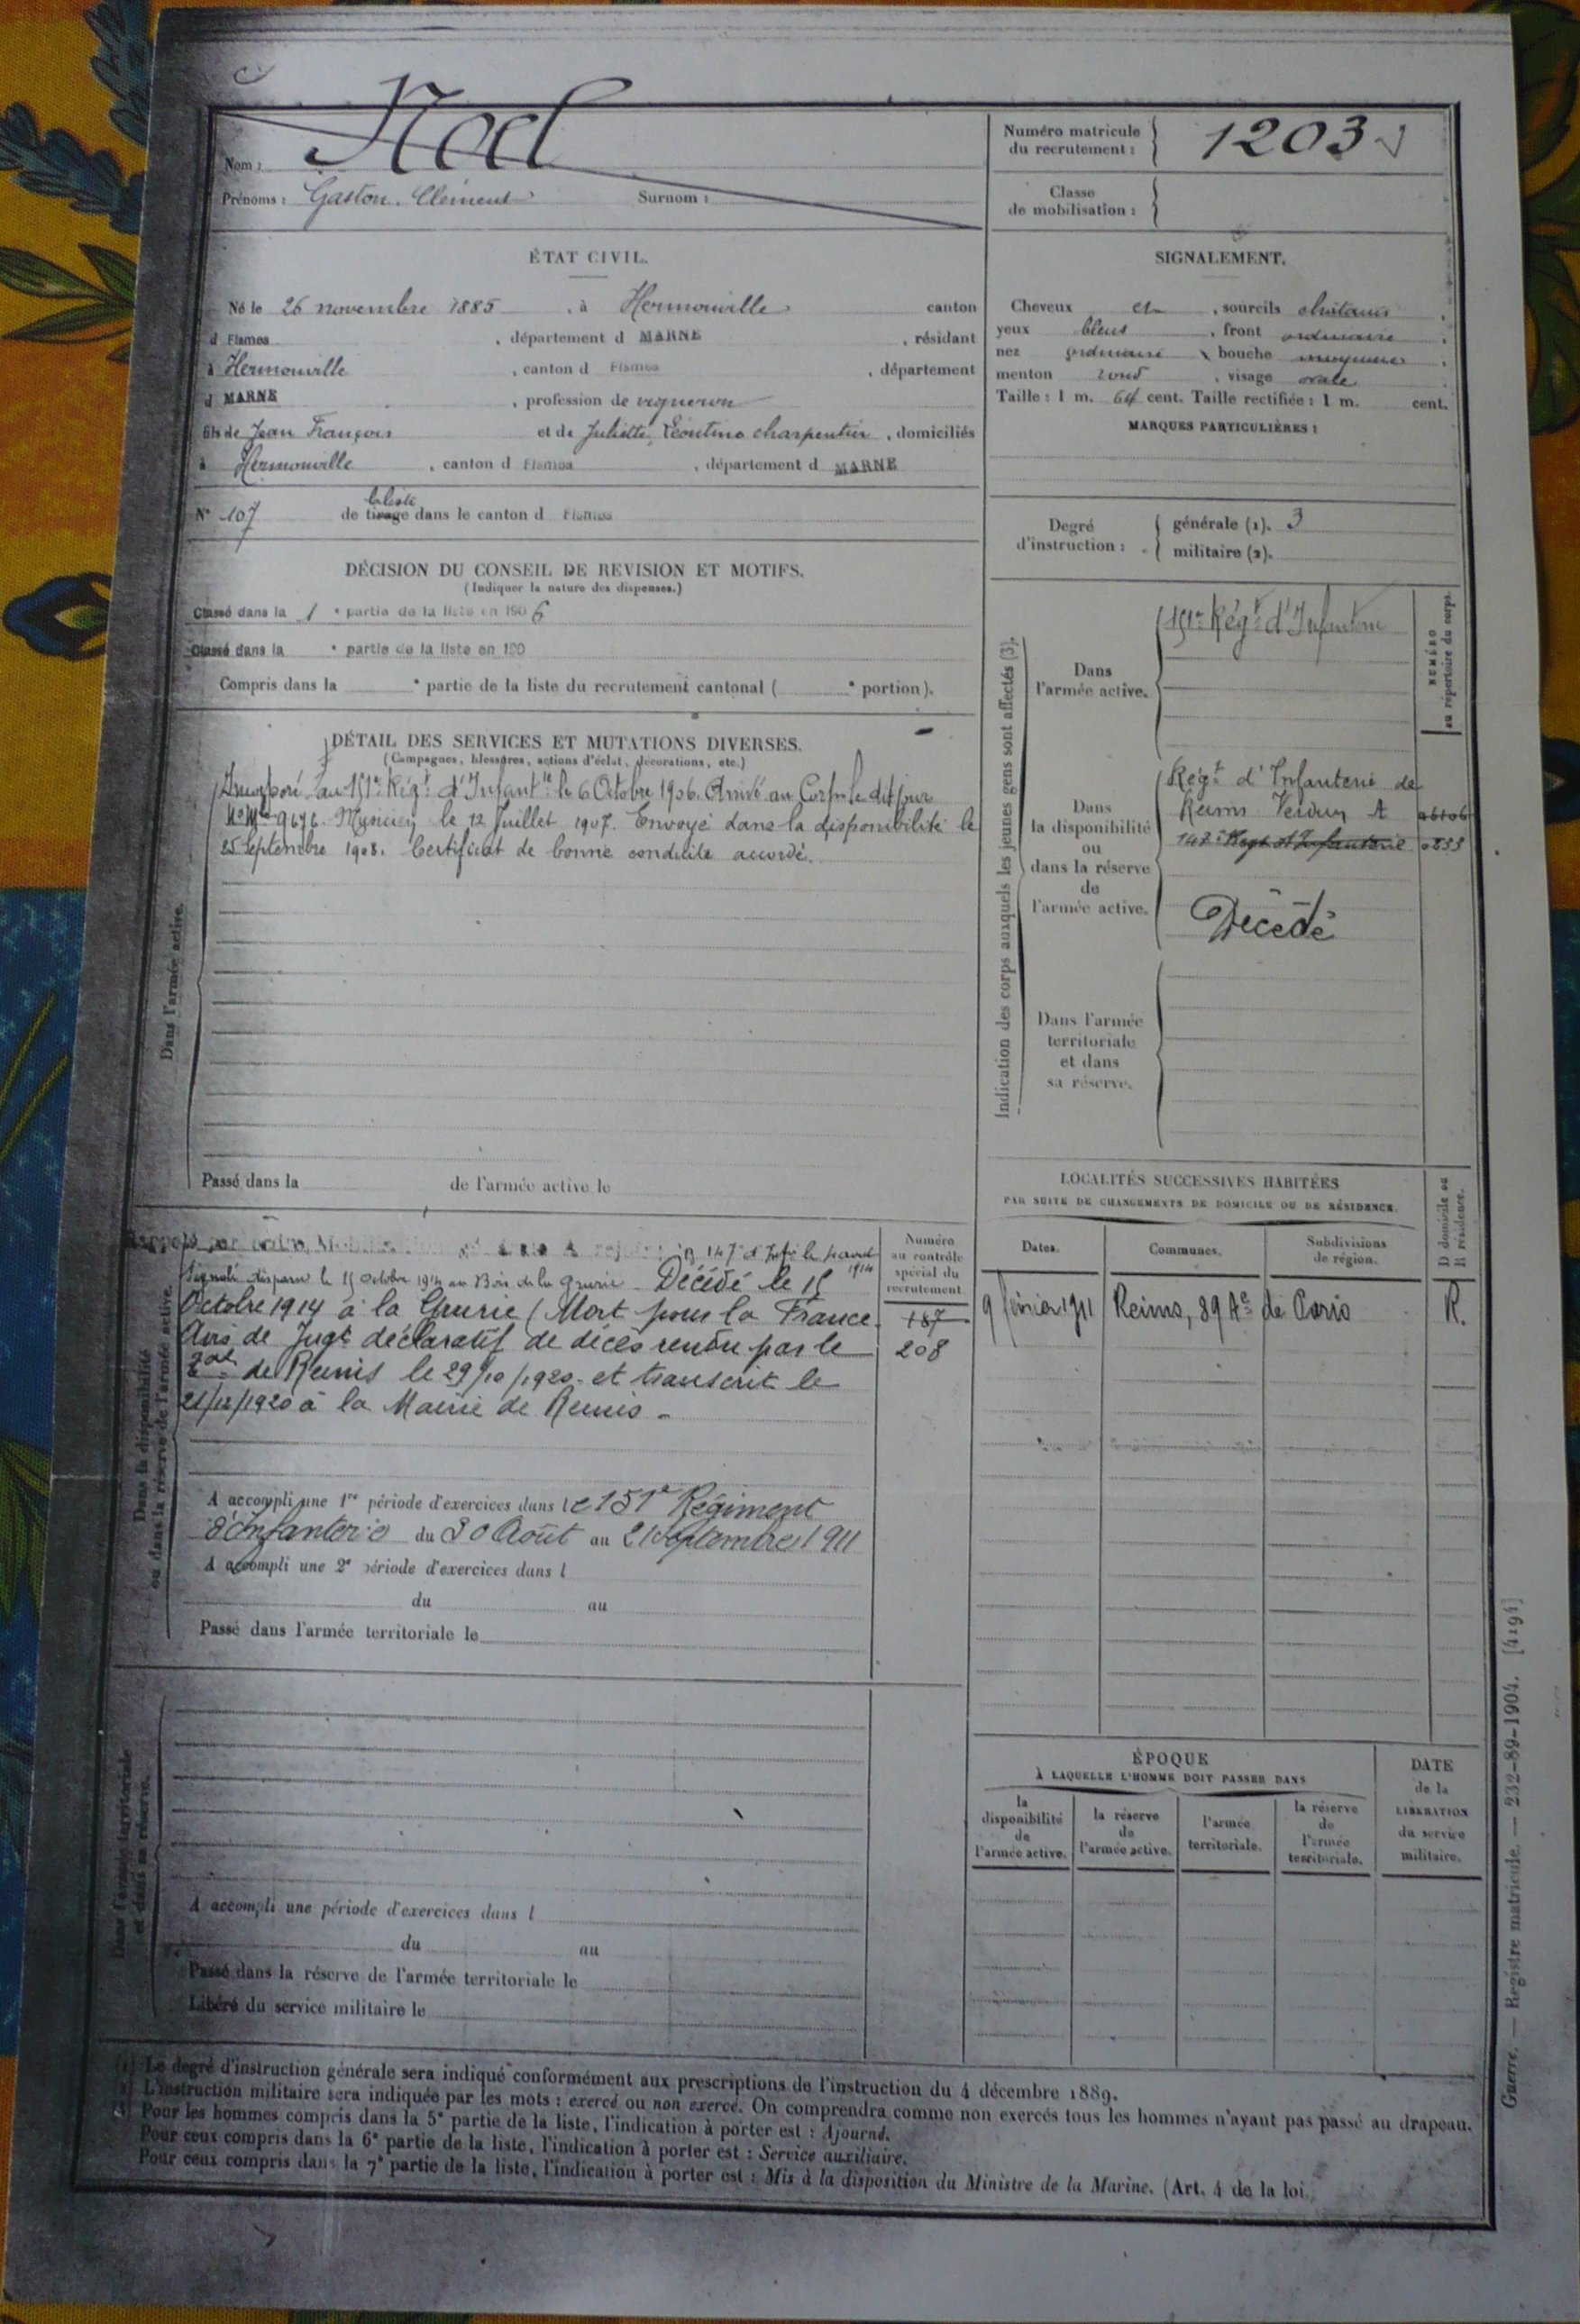 Noel
Nom :
Prénoms : Gaston. Clément
Surnom :
Numéro matricule du recrutement : 1203
Classe de mobilisation :
ÉTAT CIVIL.
Né le 26 novembre 1885, à Hermonville canton
d Fismes, département d MARNE, résidant
à Hermonville, canton d Fismes, département
d MARNE, profession de vigneron
fils de Jean François et de Juliette, Léontine charpentier, domiciliés
à Hermonville, canton d Fismes, département d MARNE
N° 107 de tirage la liste dans le canton d Fismes
SIGNALEMENT.
Cheveux et, sourcils chatains,
yeux bleus, front ordinaire,
nez ordinaire, bouche moyenne,
menton rond, visage ovale
Taille : 1 m. 64 cent. Taille rectifiée : 1 m. cent.
MARQUES PARTICULIÈRES :
Degré d'instruction :
générale (1). 3
militaire (2).
DÉCISION DU CONSEIL DE REVISION ET MOTIFS.
(Indiquer la nature des dispenses.)
Classé dans la 1e partie de la liste en 1906
Classé dans la e partie de la liste en 190
Compris dans la e partie de la liste du recrutement cantonal ( e portion).
DÉTAIL DES SERVICES ET MUTATIONS DIVERSES.
(Campagnes, blessures, actions d'éclat, décorations, etc.)
Dans l'armée active.
Incorporé au 151e Régt d'Infantie le 6 Octobre 1906. Arrivé au Corps le dit jour
No Mle 9676. Musicien le 12 Juillet 1907. Envoyé dans la disponibilité le
25 Septembre 1908. Certificat de bonne conduite accordé.
Passé dans la de l'armée active le
Indication des corps auxquels les jeunes gens sont affectés (3).
NUMÉRO au répertoire du corps.
Dans l'armée active.
151e Régt d'Infanterie
Dans la disponibilité ou dans la réserve de l'armée active.
Régt d'Infanterie de
Reims Verdun A
147e Régt d'Infanterie
Décédé
Dans l'armée territoriale et dans sa réserve.
LOCALITÉS SUCCESSIVES HABITÉES
PAR SUITE DE CHANGEMENTS DE DOMICILE OU DE RÉSIDENCE.
Dates.
Communes.
Subdivisions de région.
D domicile ou R résidence.
9 février 1911 Reims, 89 Ae de Paris R.
Dans la disponibilité ou dans la réserve de l'armée active
Numéro au contrôle spécial du recrutement.
187
208
147e d'Infie le
Signalé disparu le 15 octobre 1914 au Bois de la Grurie. Décédé le 15
Octobre 1914 à la Grurie (Mort pour la France.
Avis de Jugt déclaratif de décès rendu par le
de Reims le 29/10/1920 et transcrit le
21/12/1920 à la Mairie de Reims -
A accompli une 1re période d'exercices dans le 151e Régiment
d'Infanterie du 30 Août au 21 Septembre 1911
A accompli une 2e période d'exercices dans l
du au
Passé dans l'armée territoriale le
Dans l'armée territoriale et dans sa réserve.
A accompli une période d'exercices dans l
du au
Passé dans la réserve de l'armée territoriale le
Libéré du service militaire le
ÉPOQUE
À LAQUELLE L'HOMME DOIT PASSER DANS
la disponibilité de l'armée active.
la réserve de l'armée active.
l'armée territoriale.
la réserve de l'armée territoriale.
DATE de la LIBÉRATION du service militaire.
(1) Le degré d'instruction générale sera indiqué conformément aux prescriptions de l'instruction du 4 décembre 1889.
(2) L'instruction militaire sera indiquée par les mots : exercé ou non exercé. On comprendra comme non exercés tous les hommes n'ayant pas passé au drapeau.
(3) Pour les hommes compris dans la 5e partie de la liste, l'indication à porter est : Ajourné.
Pour ceux compris dans la 6e partie de la liste, l'indication à porter est : Service auxiliaire.
Pour ceux compris dans la 7e partie de la liste, l'indication à porter est : Mis à la disposition du Ministre de la Marine. (Art. 4 de la loi.
Guerre. — Registre matricule. — 232-89-1904. [4194]